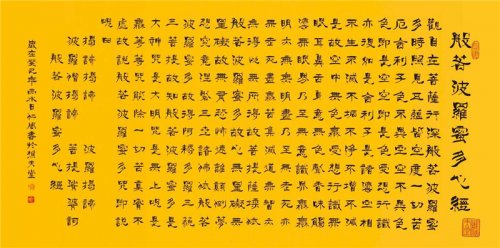 般若波羅蜜多心經
觀自在菩薩行深般若波羅蜜
多時照見五蘊皆空度一切苦
厄舍利子色不異空空不異色
色即是空空即是色受想行識
亦復如是舍利子是諸法空相
不生不滅不垢不淨不增不減
是故空中無色無受想行識無
眼耳鼻舌身意無色聲香味觸
法無眼界乃至無意識界無無
明亦無無明盡乃至無老死亦
無老死盡無苦集滅道無智亦
無得以無所得故菩提薩埵依
般若波羅蜜多故心無罣礙無
罣礙故無有恐怖遠離顛倒夢
想究竟涅槃三世諸佛依般若
波羅蜜多故得阿耨多羅三藐
三菩提故知般若波羅蜜多是
大神咒是大明咒是無上咒是
無等等咒能除一切苦真實不
虛故說般若波羅蜜多咒即說
咒曰
揭諦揭諦 波羅揭諦
波羅僧揭諦 菩提薩婆訶
般若波羅蜜多心經
歲在癸巳年雨水日